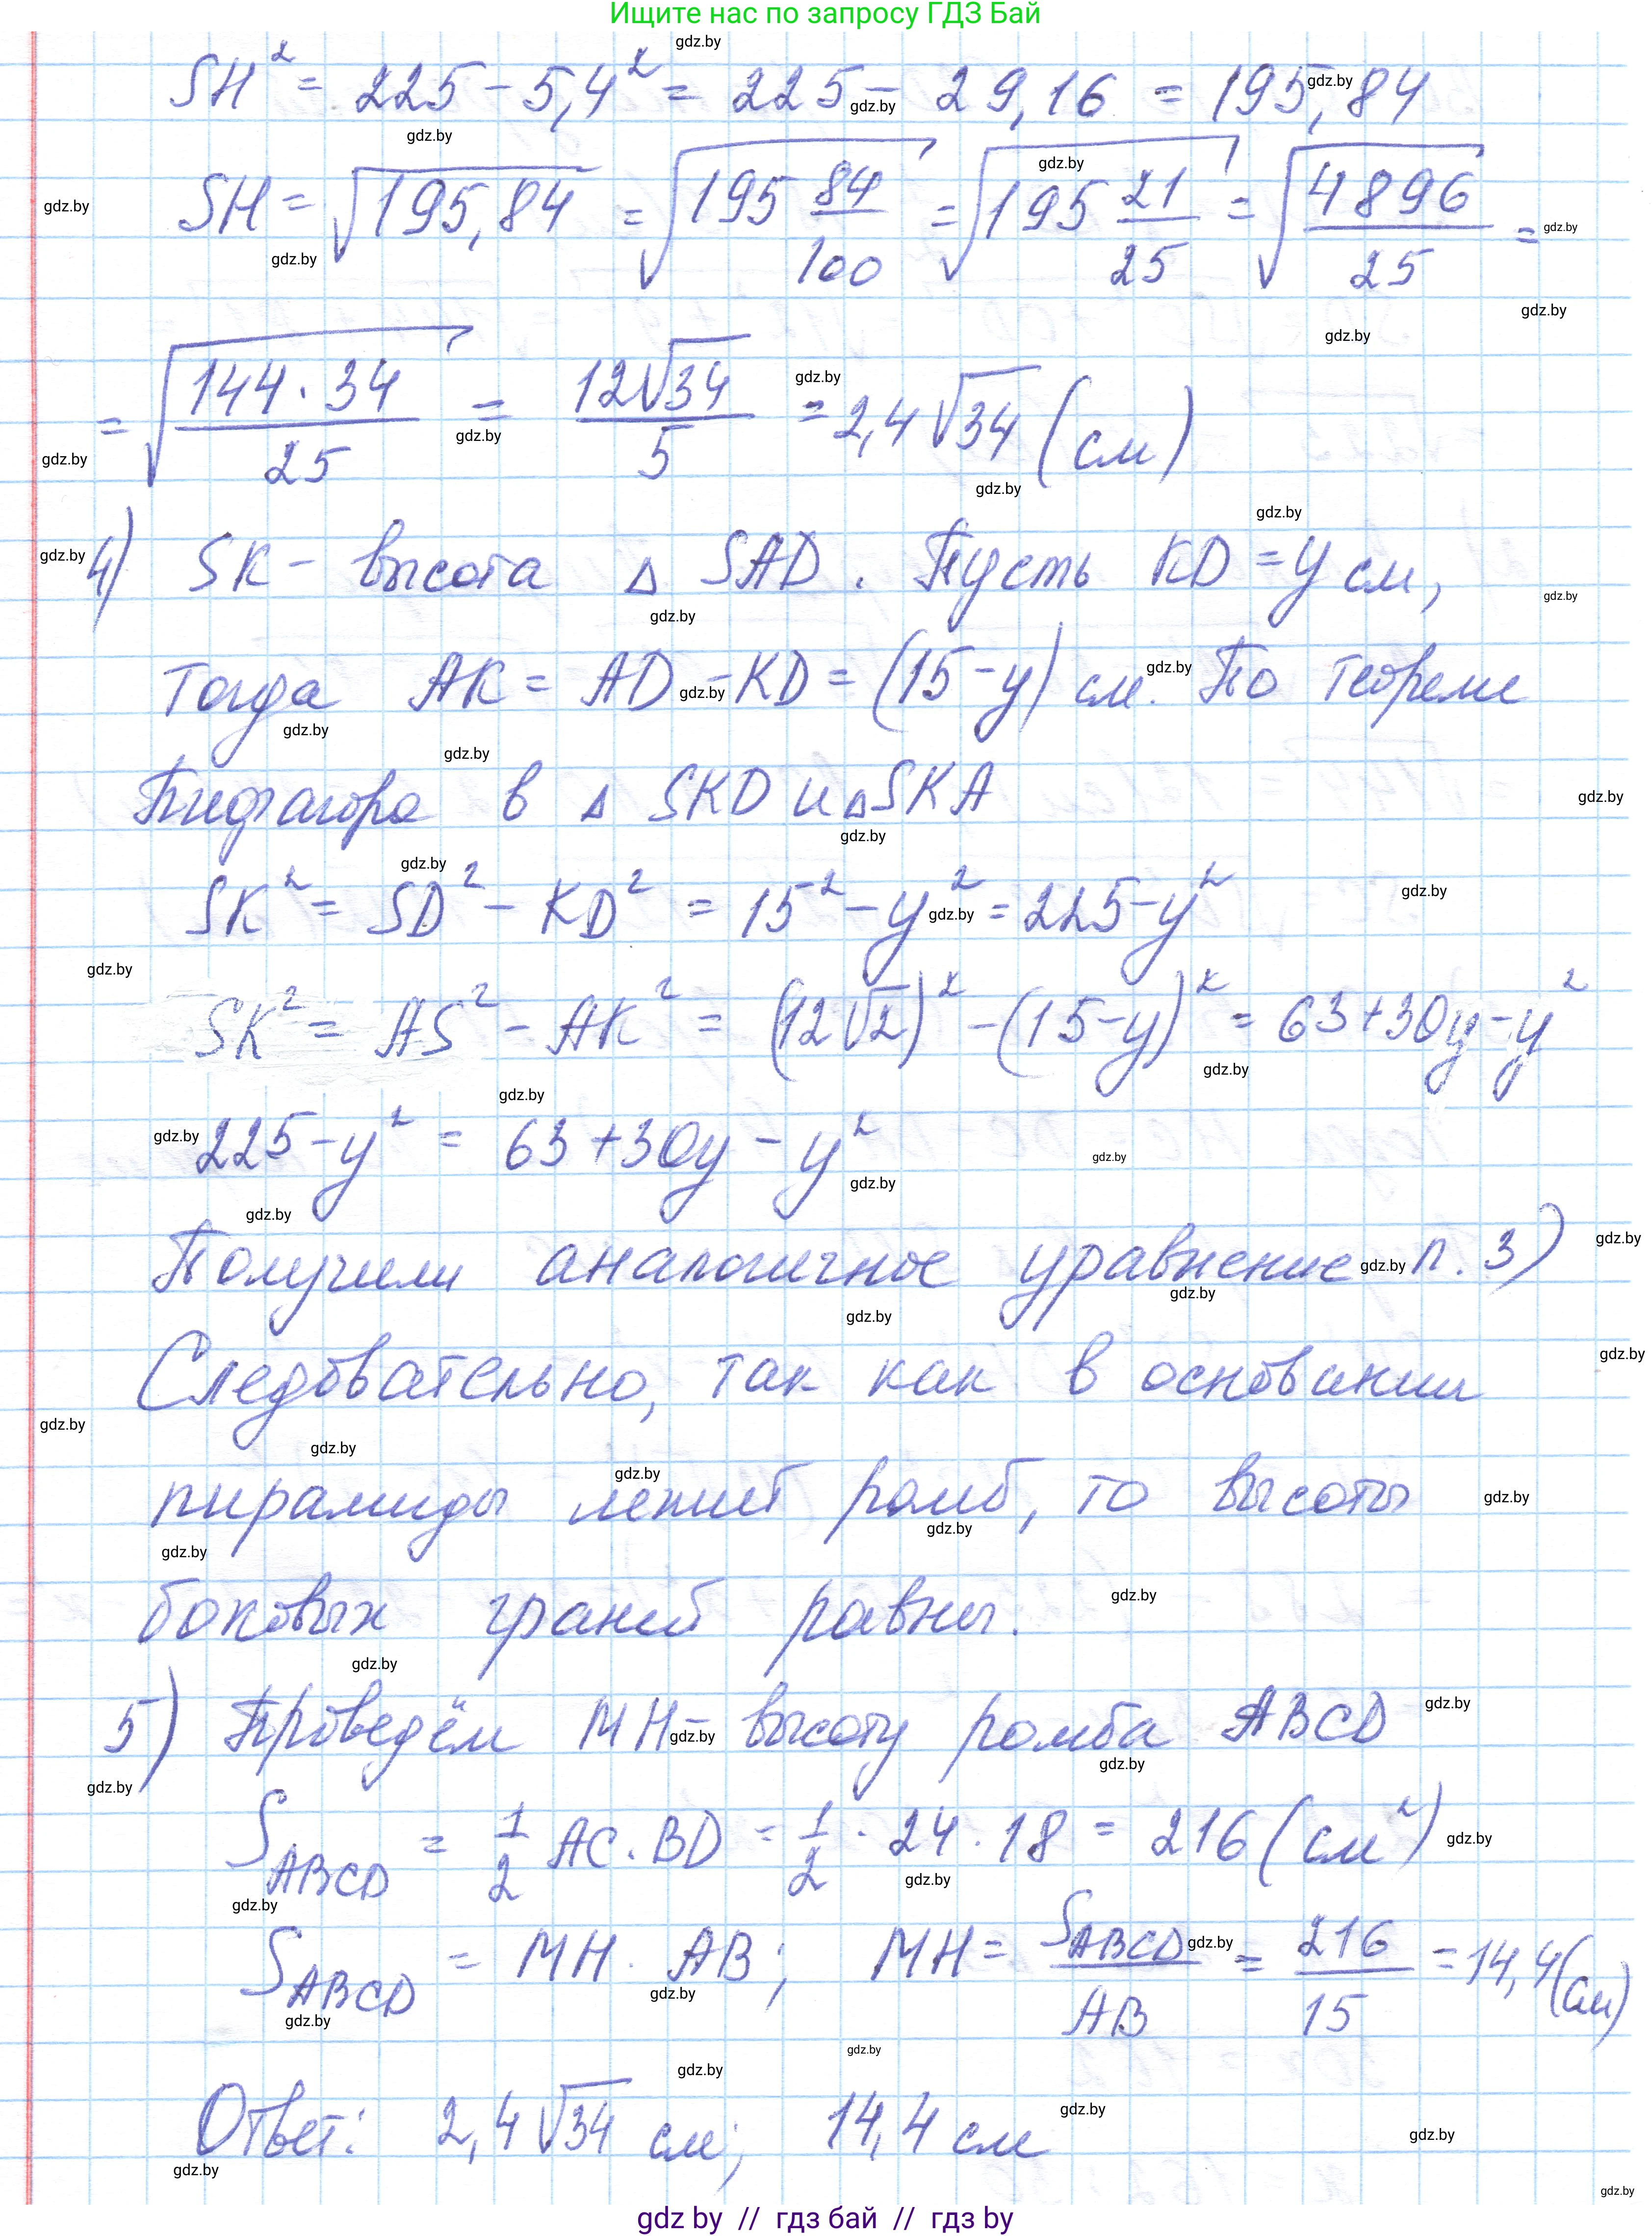 Ищите нас по запросу ГДЗ Бай
SH² = 225 - 5,4² = 225 - 29,16 = 195,84
SH = √195,84 = √(195 84/100) = √(195 21/25) = √(4896/25) =
= √(144·34/25) = 12√34/5 = 2,4√34 (см)
4) SK - высота Δ SAD. Пусть KD = y см,
тогда AK = AD - KD = (15-y) см. По теореме
Пифагора в Δ SKD и Δ SKA
SK² = SD² - KD² = 15² - y² = 225 - y²
SK² = AS² - AK² = (12√2)² - (15-y)² = 63+30y-y²
225 - y² = 63 + 30y - y²
Получили аналогичное уравнение п. 3)
Следовательно, так как в основании
пирамиды лежит ромб, то высоты
боковых граней равны.
5) Проведём MH - высоту ромба ABCD
S ABCD = 1/2 AC · BD = 1/2 · 24 · 18 = 216 (см²)
S ABCD = MH · AB; MH = S ABCD/AB = 216/15 = 14,4 (см)
Ответ: 2,4√34 см; 14,4 см
gdz by // гдз бай // гдз by